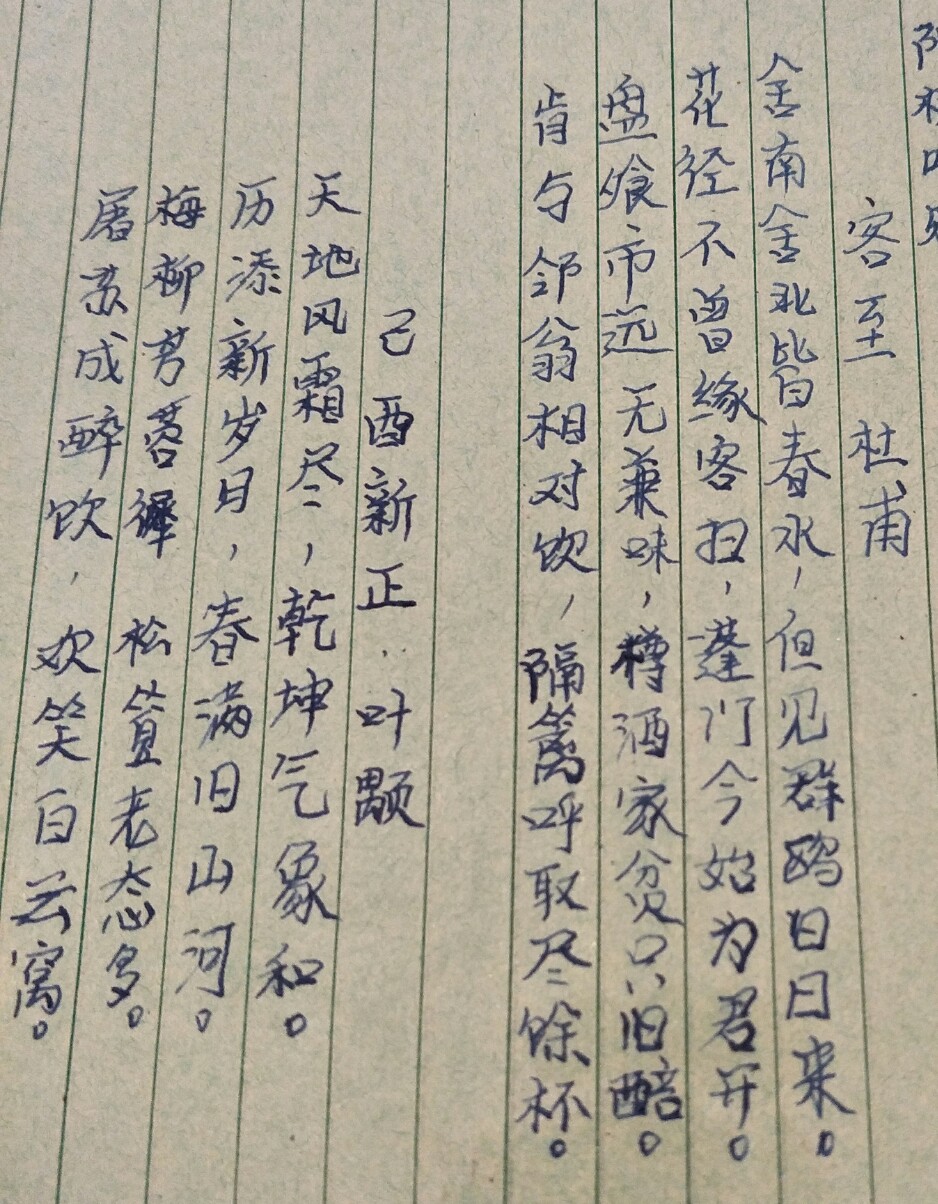 客至 杜甫
舍南舍北皆春水，但见群鸥日日来。
花径不曾缘客扫，蓬门今始为君开。
盘飧市远无兼味，樽酒家贫只旧醅。
肯与邻翁相对饮，隔篱呼取尽馀杯。
己酉新正 叶颙
天地风霜尽，乾坤气象和。
历添新岁日，春满旧山河。
梅柳芳蓉徲 松篁老态多。
屠苏成醉饮，欢笑白云窝。